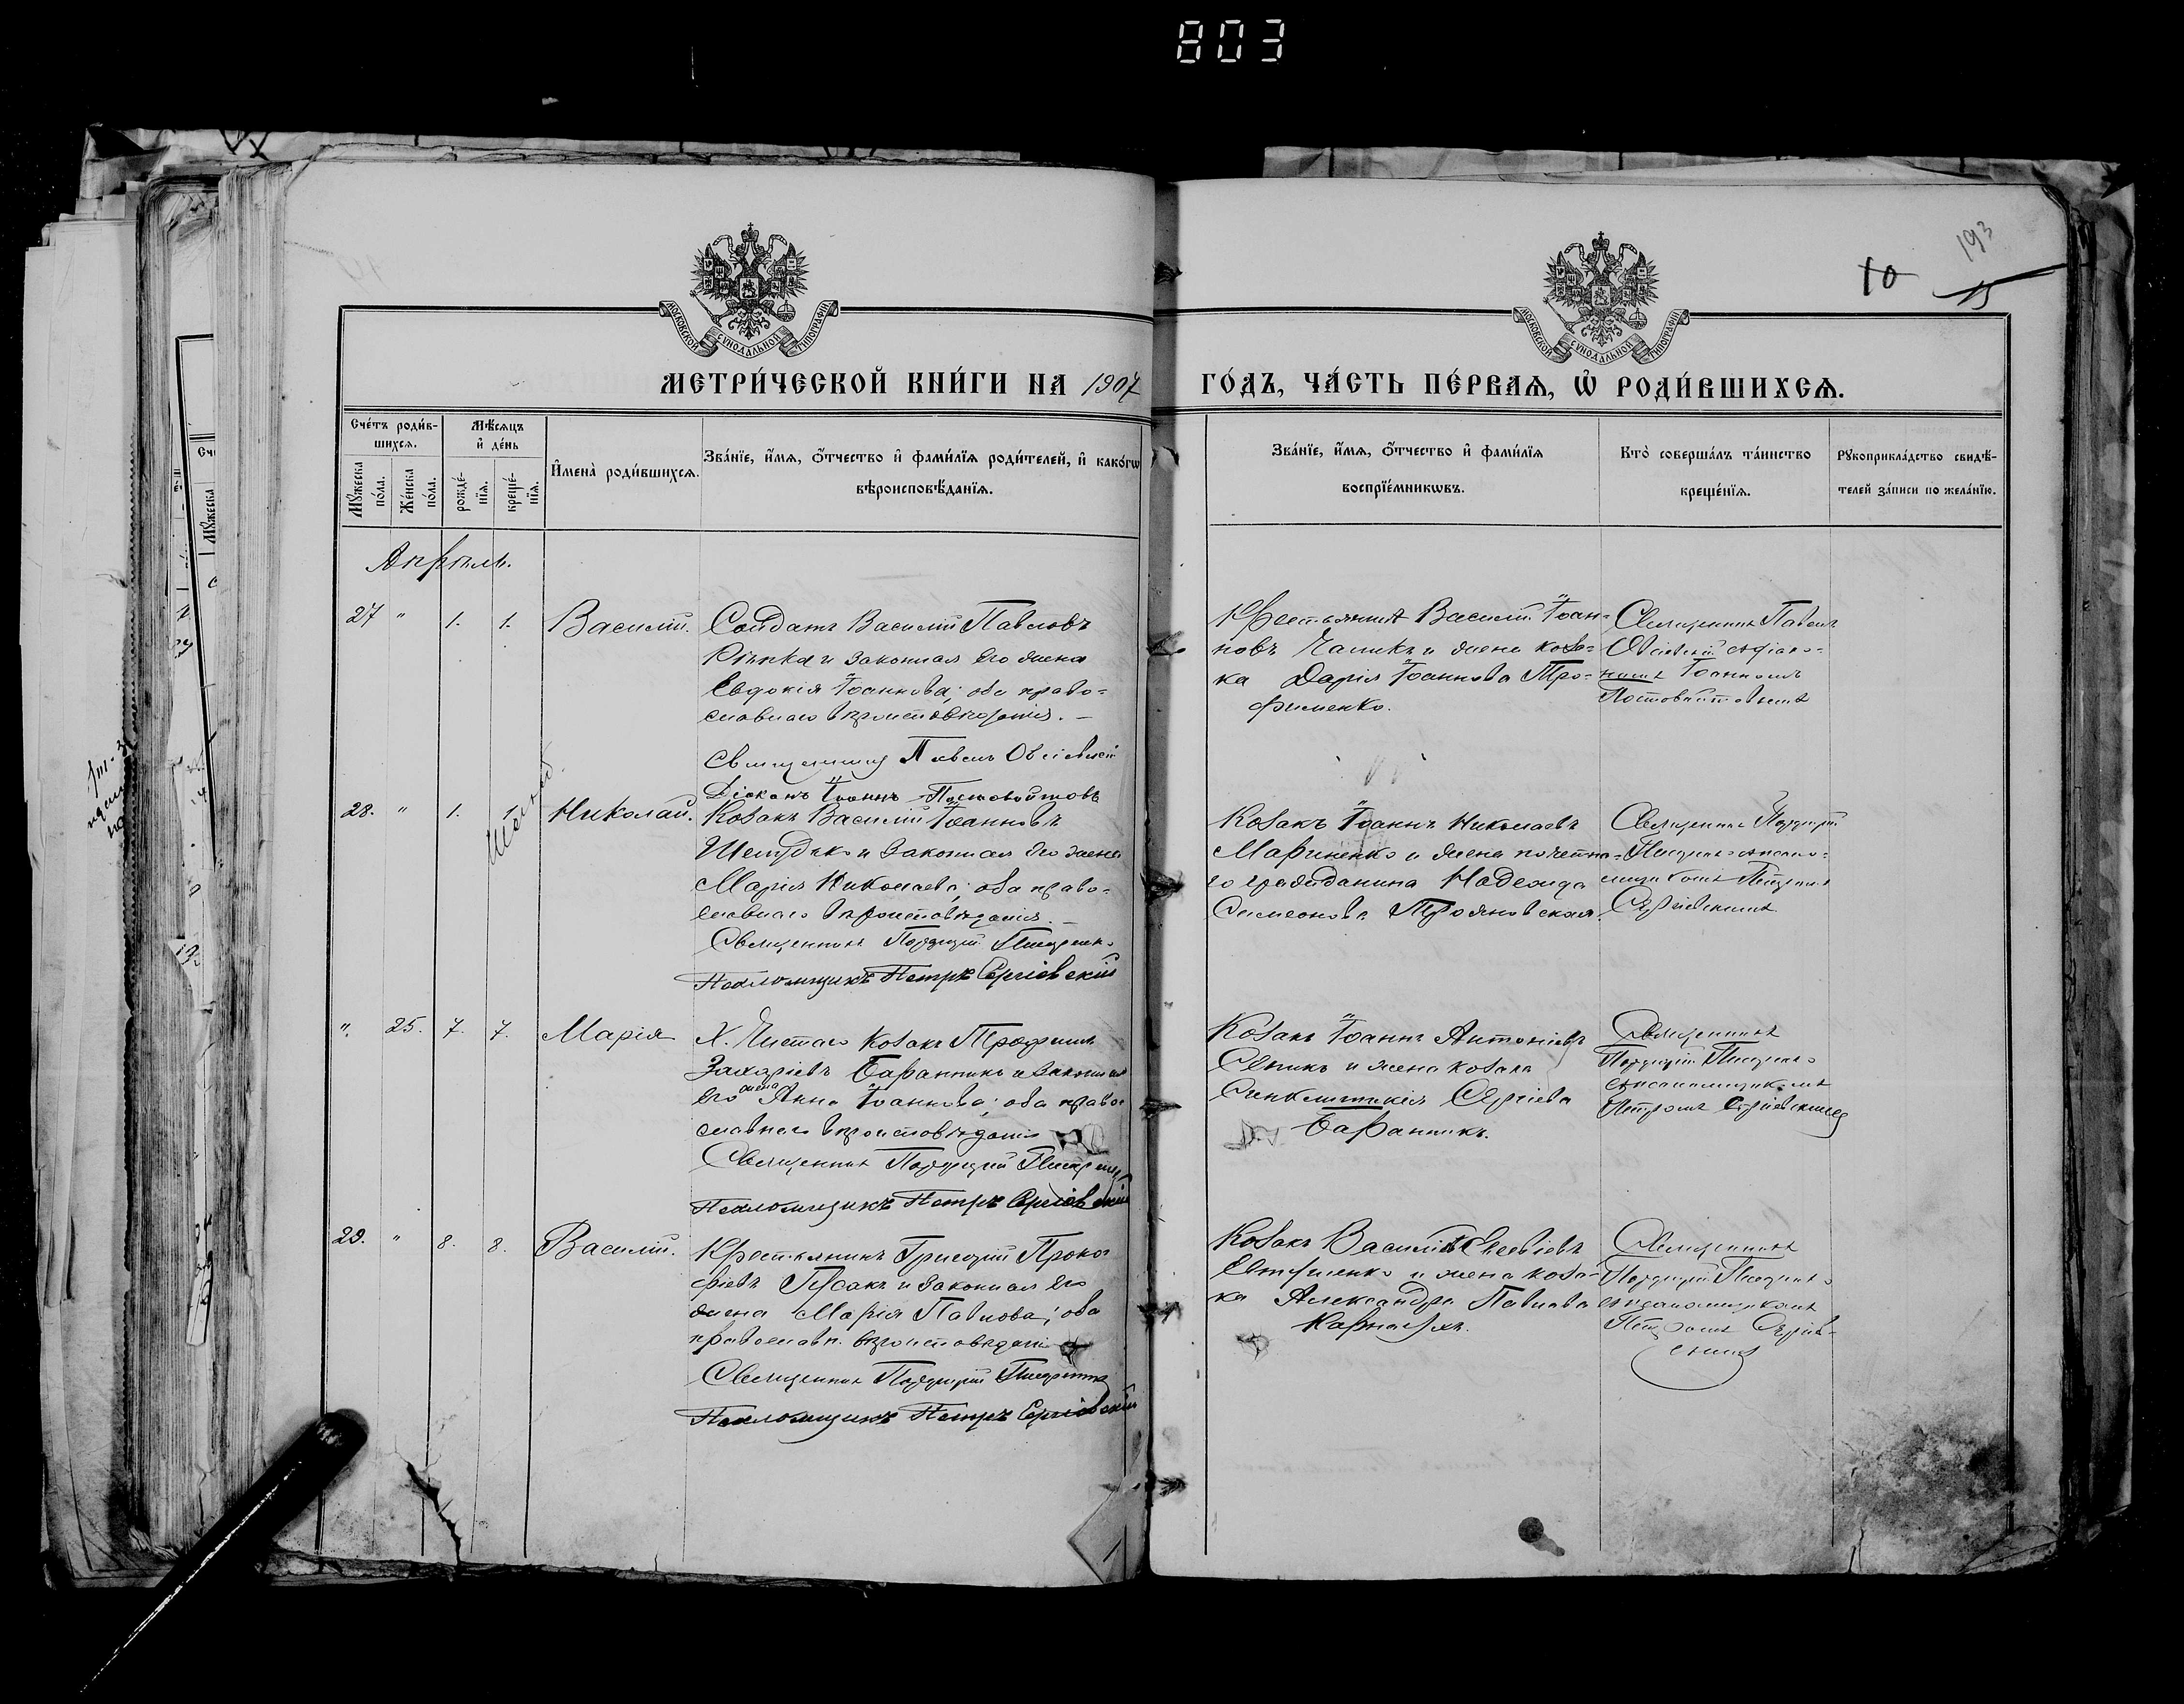 803
193
10
15
МОСКОВСКОЙ СѴНОДАЛЬНОЙ ТИПОГРАФІИ
МОСКОВСКОЙ СѴНОДАЛЬНОЙ ТИПОГРАФІИ
МЕТРИ́ЧЕСКОЙ КНИ́ГИ НА 1907 ГО́ДЪ, ЧА́СТЬ ПЕ́РВАѦ, Ѡ҆ РОДИ́ВШИХСѦ.
Сче́тъ роди́вшихсѧ.
Мꙋ́жеска по́ла.
Же́нска по́ла.
Мѣ́сѧцъ и҆ де́нь
рожде́нїѧ.
креще́нїѧ.
И҆мена̀ роди́вшихсѧ.
Зва́нїе, и҆́мѧ, ѻ҆́тчество и҆ фами́лїѧ роди́телей, и҆ како́гѡ
вѣроисповѣ́данїѧ.
Зва́нїе, и҆́мѧ, ѻ҆́тчество и҆ фами́лїѧ
воспрїе́мникѡвъ.
Кто̀ соверша́лъ та́инство
креще́нїѧ.
Рꙋкоприкла́дство свидѣ́-
телей за́писи по жела́нїю.
Апрѣль.
27 " 1. 1. Василій.
Солдатъ Василій Павловъ
Рѣпка и законная его жена
Евдокія Іоаннова; оба право-
славнаго вѣроисповѣданія. —
Священникъ Павелъ
Діаконъ Іоаннъ Постовойтовъ
Крестьянинъ Василій Іоан-
новъ и жена коза-
ка Дарія Іоаннова Тро-
фименко.
Священникъ Павелъ
съ діако-
номъ Іоанномъ
Постовойтовымъ
28. " 1. 1. Николай.
Козакъ Василій Іоанновъ
и законная его жена
Марія Николаева; оба право-
славнаго вѣроисповѣданія. —
Священникъ
Псаломщикъ Петръ Сергіевскій
Козакъ Іоаннъ Николаевъ
Мариненко и жена почетна-
го гражданина Надежда
Симеонова Трояновская.
Священникъ
съ псалом-
щикомъ Петромъ
Сергіевскимъ
". 25. 7. 7. Марія
Х. Чистаго козакъ Трофимъ
Захаріевъ Баранникъ и законная
его жена Анна Іоаннова; оба право-
славнаго вѣроисповѣданія
Священникъ
Псаломщикъ Петръ Сергіевскій
Козакъ Іоаннъ Антоніевъ
Сѣникъ и жена козака
Синклитикія Сергіева
Баранникъ.
Священникъ
съ псаломщикомъ
Петромъ Сергіевскимъ
29. " 8. 8. Василій.
Крестьянинъ Григорій Проко-
фіевъ и законная его
жена Марія Павлова; оба
православн. вѣроисповѣданія
Священникъ
Псаломщикъ Петръ Сергіевскій
Козакъ Василій
Евтушенко и жена коза-
ка Александра Павлова
Священникъ
съ псаломщикомъ
Петромъ Сергіев-
скимъ